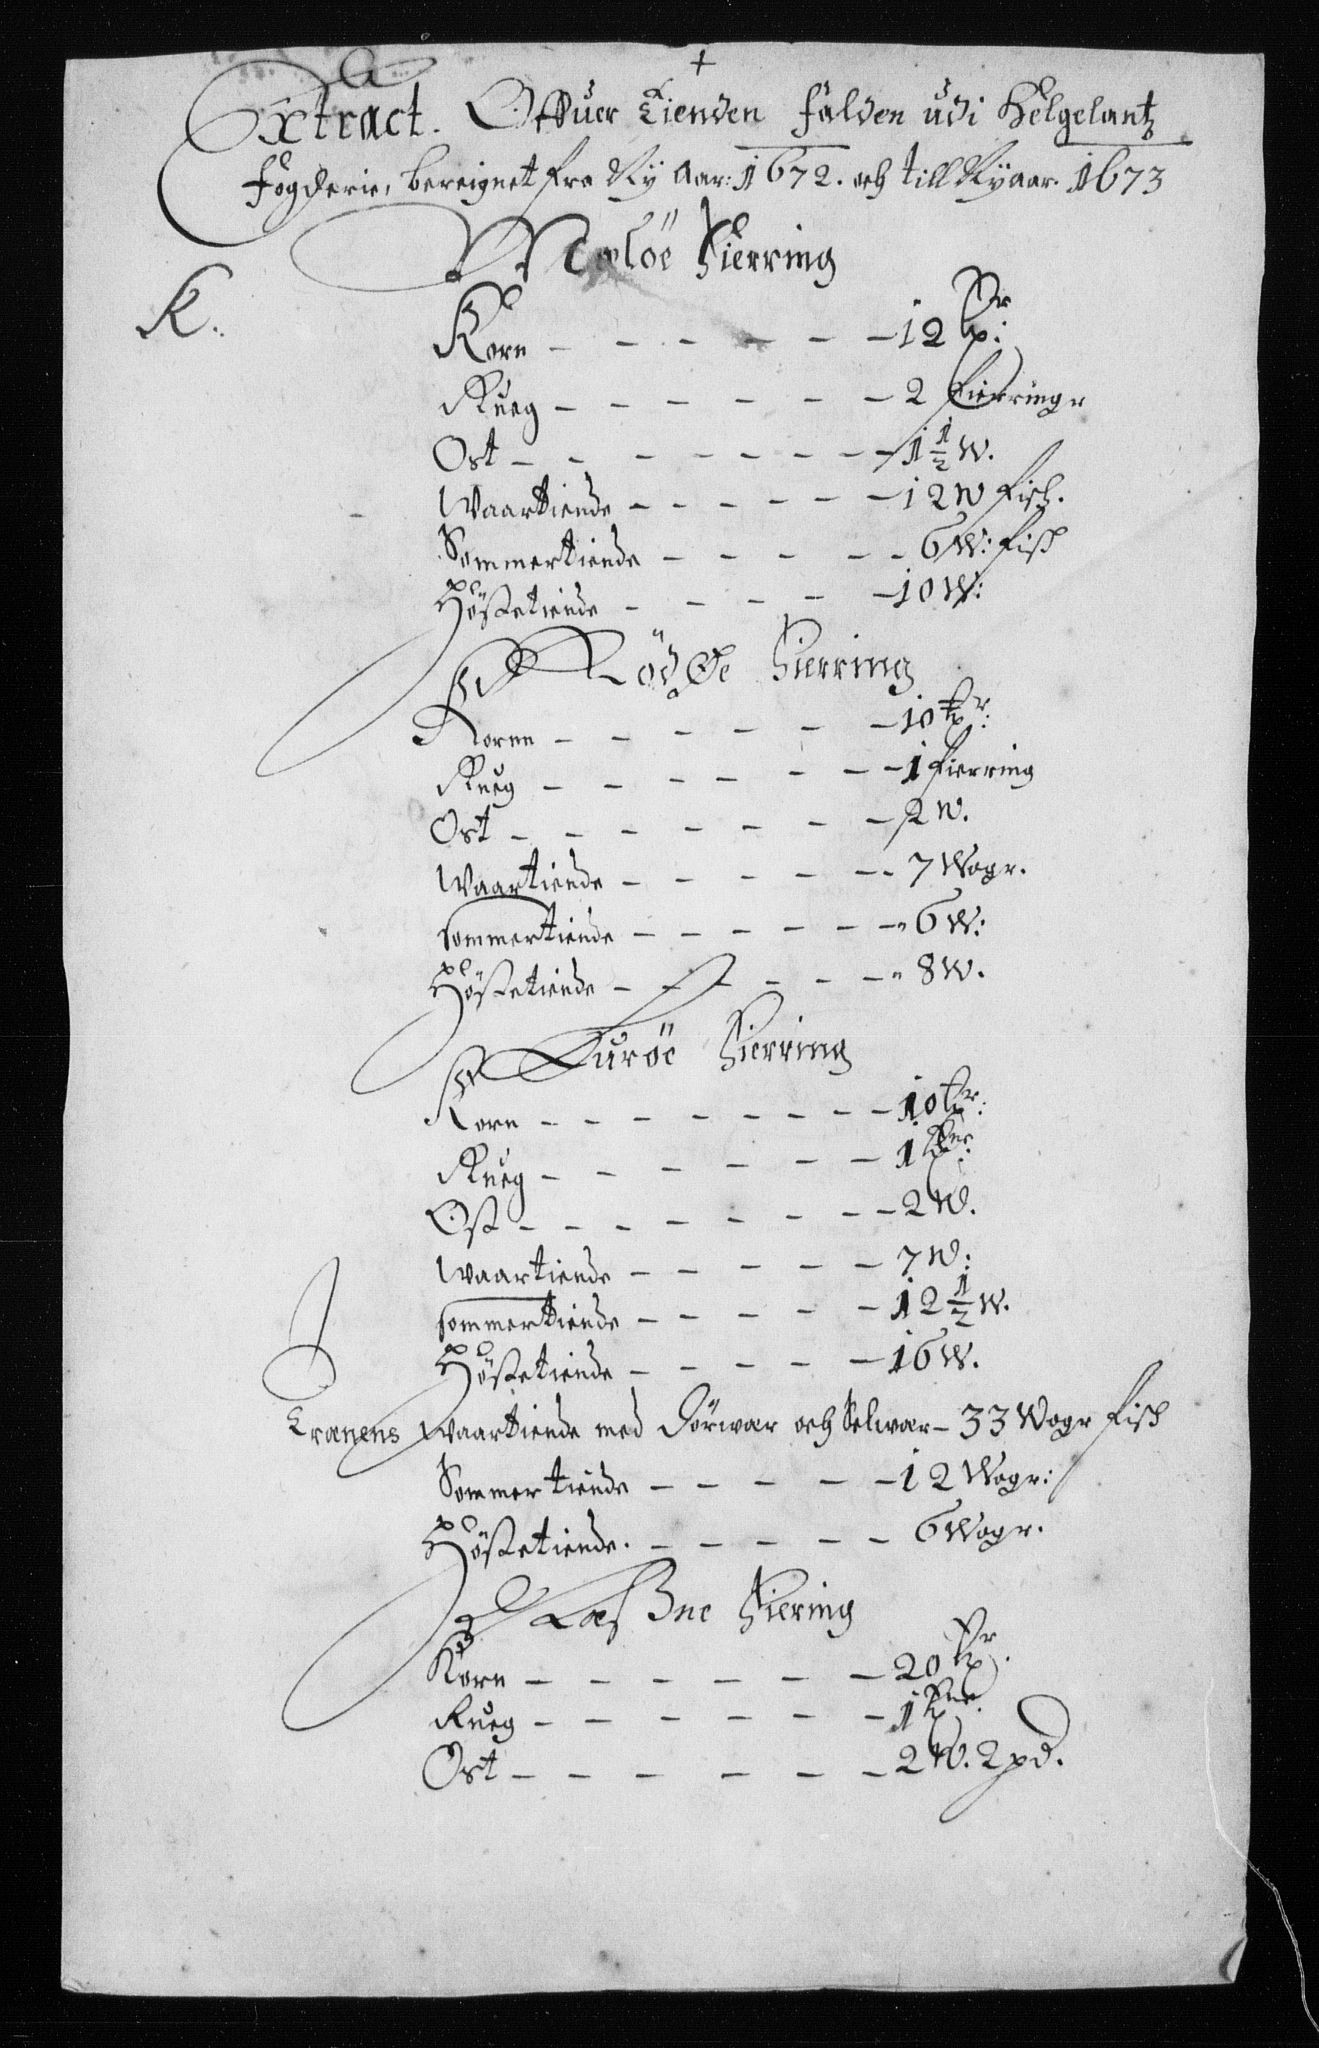 +
Extract. Offuer Tienden falden udi Helgelantz
fogderie, bereignet fra Ny Aar: 1672. och till Nyaar. 1673
Meløe Fierring
K.
Korn - - - - - - 12 tpr:
Rueg - - - - - - 2 fierringr
Ost - - - - - - - 1 1/2 W.
Waartiende - - - - - 12 W fisch.
Sommertiende - - - - - 6 W: fisch
Høstetiende - - - - - 10 W:
Rødøe Fierring
Kornn - - - - - - 10 tpr:
Rueg - - - - - - - 1 fierring
Ost - - - - - - - 2 W.
Waartiende - - - - - - 7 Wogr.
sommertiende - - - - - - 6 W:
Høstetiende - - - - - - 8 W.
Lurøe Fierring
Korn - - - - - - - - 10 tpr:
Rueg - - - - - - - 1
Ost - - - - - - - - 2 W.
Waartiende - - - - - 7 W:
sommertiende - - - - - 12 1/2 W.
Høstetiende - - - - - 16 W.
Trænens Waartiende med Dørwær och Selwær - 33 Wogr fisch
Sommertiende - - - - - 12 Wogr:
Høstetiende. - - - - - 6 Wogr.
Fiering
Korn - - - - - - 20 tpr.
Rueg - - - - - - - 1
Ost - - - - - - - 2 W. 2 pd.